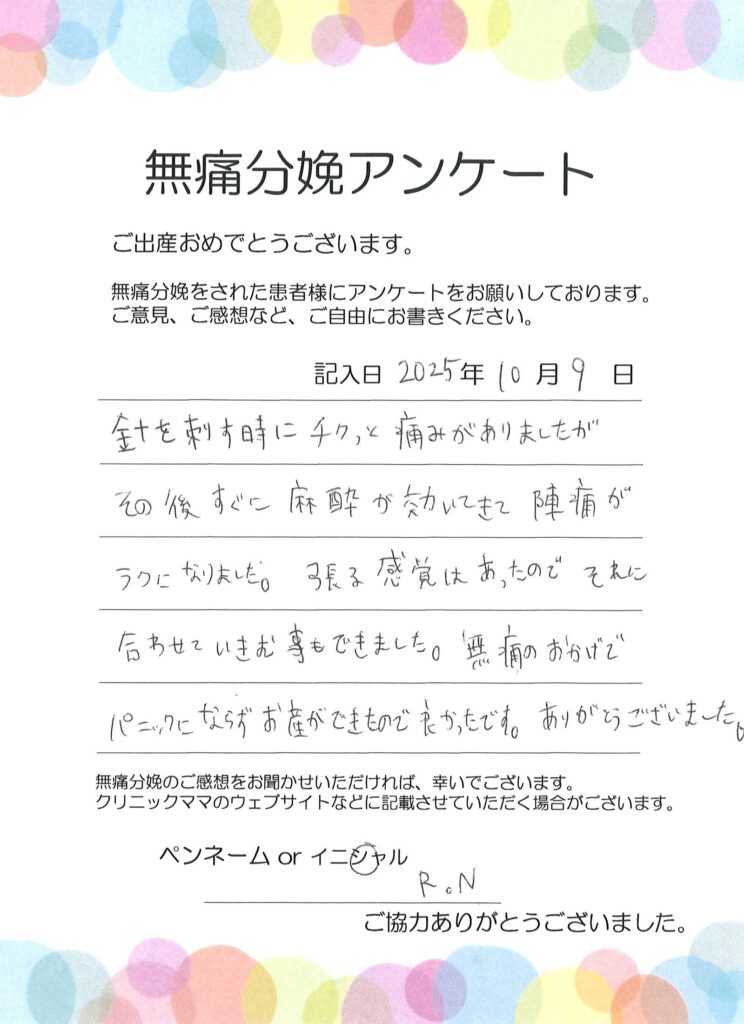 無痛分娩アンケート
ご出産おめでとうございます。
無痛分娩をされた患者様にアンケートをお願いしております。
ご意見、ご感想など、ご自由にお書きください。
記入日 2025年 10月 9日
針を刺す時にチクっと痛みがありましたが
その後すぐに麻酔が効いてきて陣痛が
ラクになりました。張る感覚はあったのでそれに
合わせていきむ事もできました。無痛のおかげで
パニックにならずお産ができたので良かったです。ありがとうございました。
無痛分娩のご感想をお聞かせいただければ、幸いでございます。
クリニックママのウェブサイトなどに記載させていただく場合がございます。
ペンネーム or イニシャル
R.N
ご協力ありがとうございました。